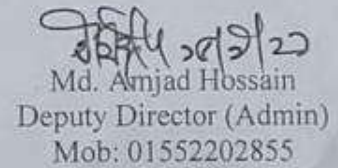 Md. Amjad Hossain
Deputy Director (Admin)
Mob: 01552202855